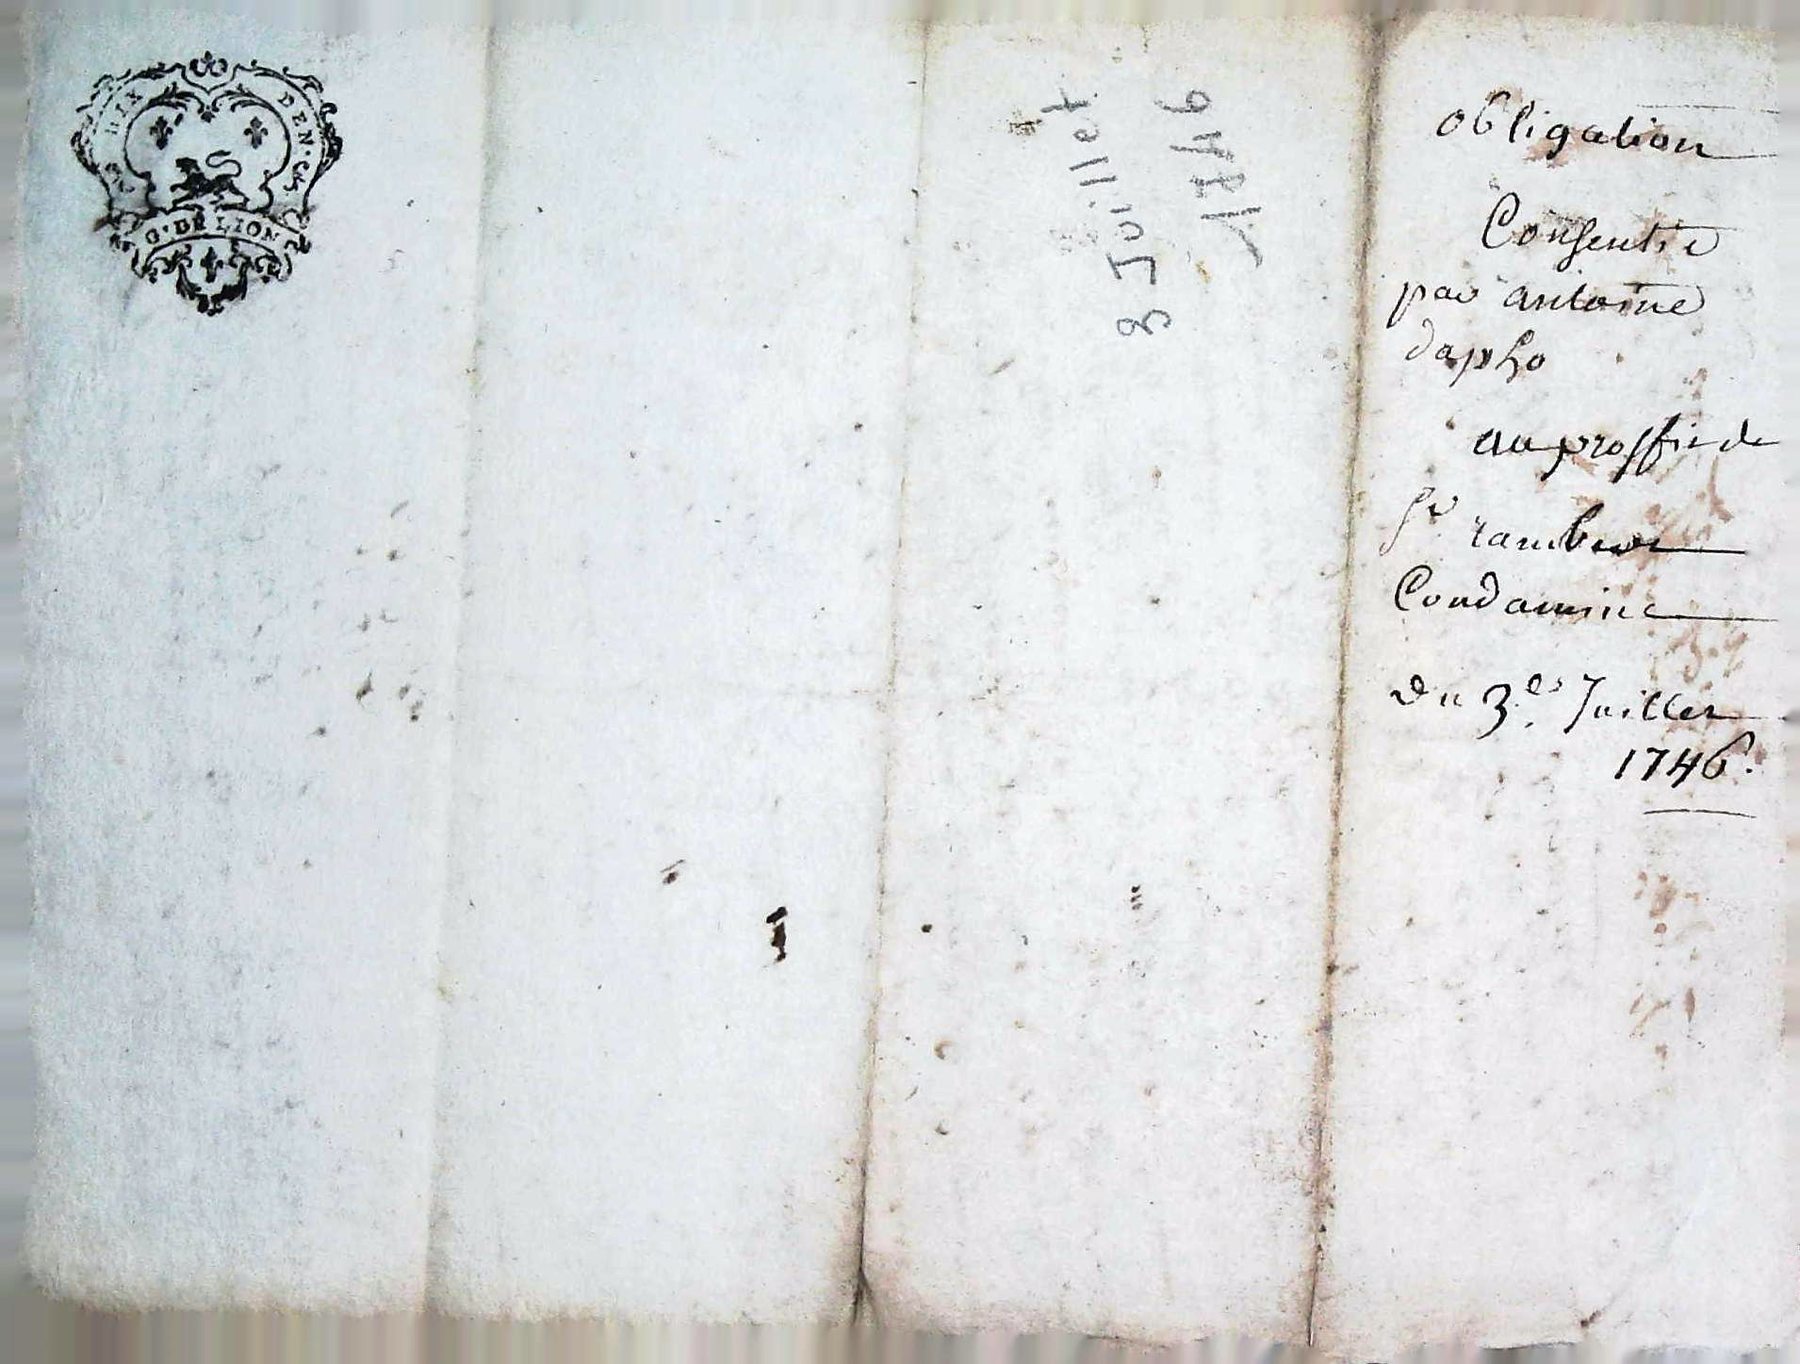 DIX DEN.
G. DE LION
3 Juillet
1746
obligation
Consentie
par antoine
dapho
au proffit de
Sr rambeon
Condamine
Du 3e. Juillet
1746.